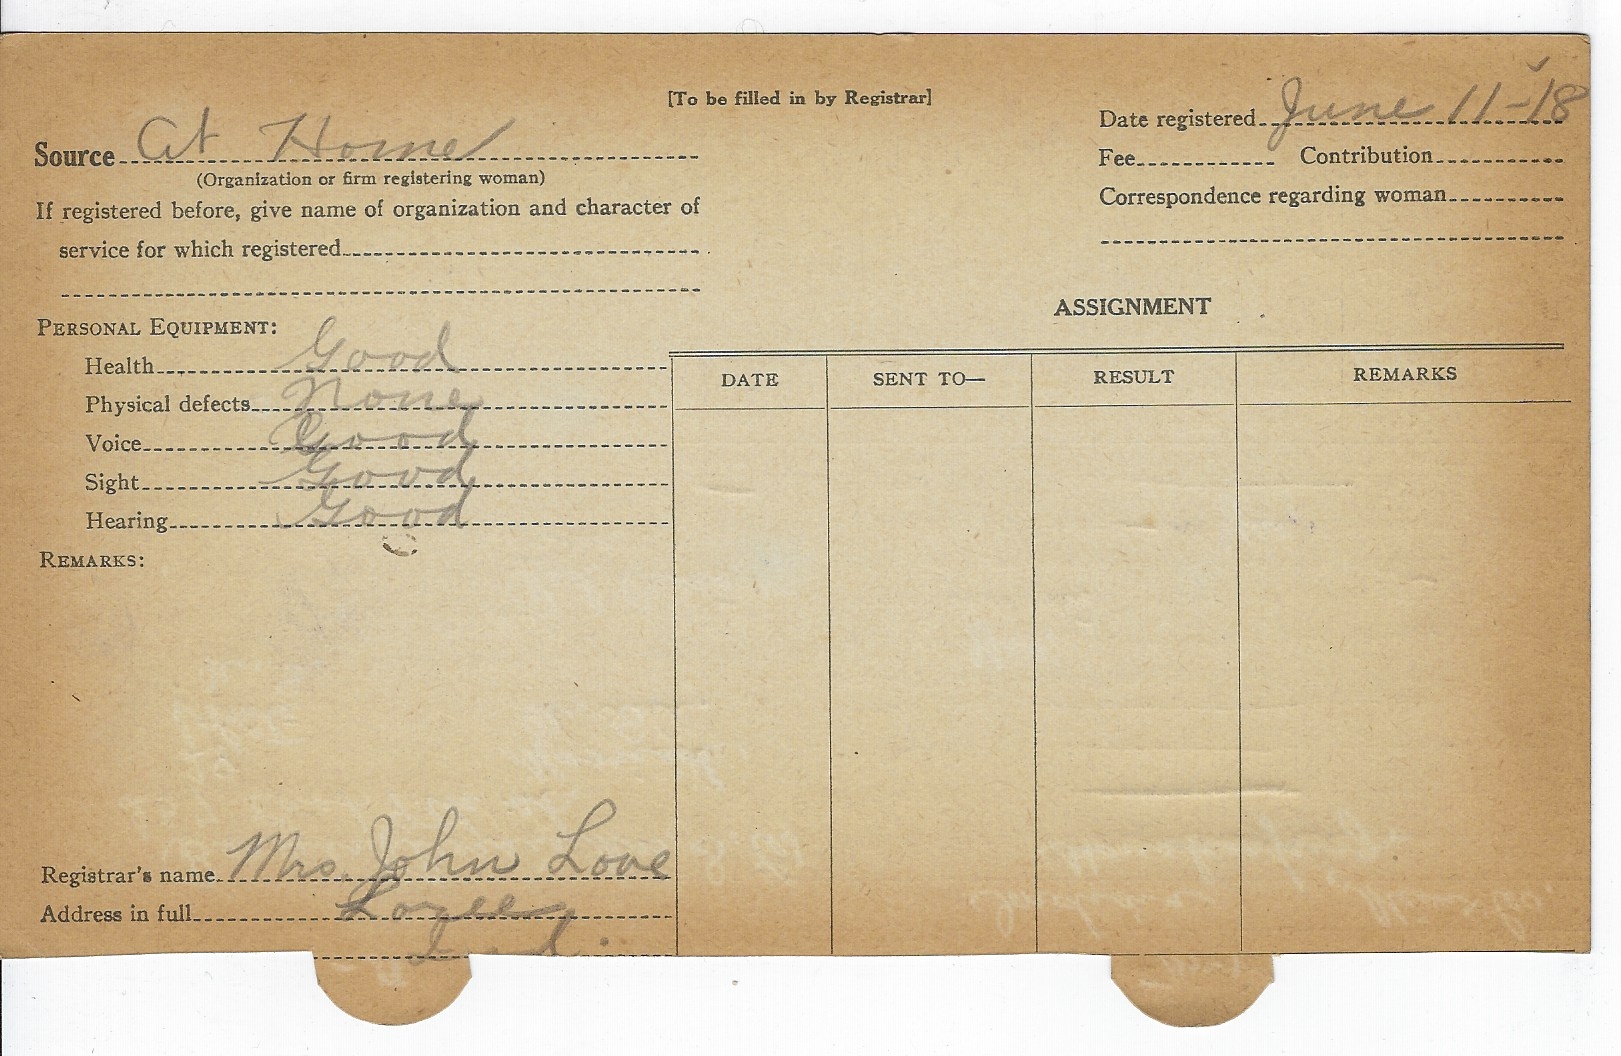 [To be filled in by Registrar]
Source At Home
(Organization or firm registering woman)
If registered before, give name of organization and character of
service for which registered
Date registered June 11-18
Fee Contribution
Correspondence regarding woman
PERSONAL EQUIPMENT:
Health Good
Physical defects None
Voice Good
Sight Good
Hearing Good
REMARKS:
ASSIGNMENT
DATE SENT TO— RESULT REMARKS
Registrar's name Mrs. John Love
Address in full